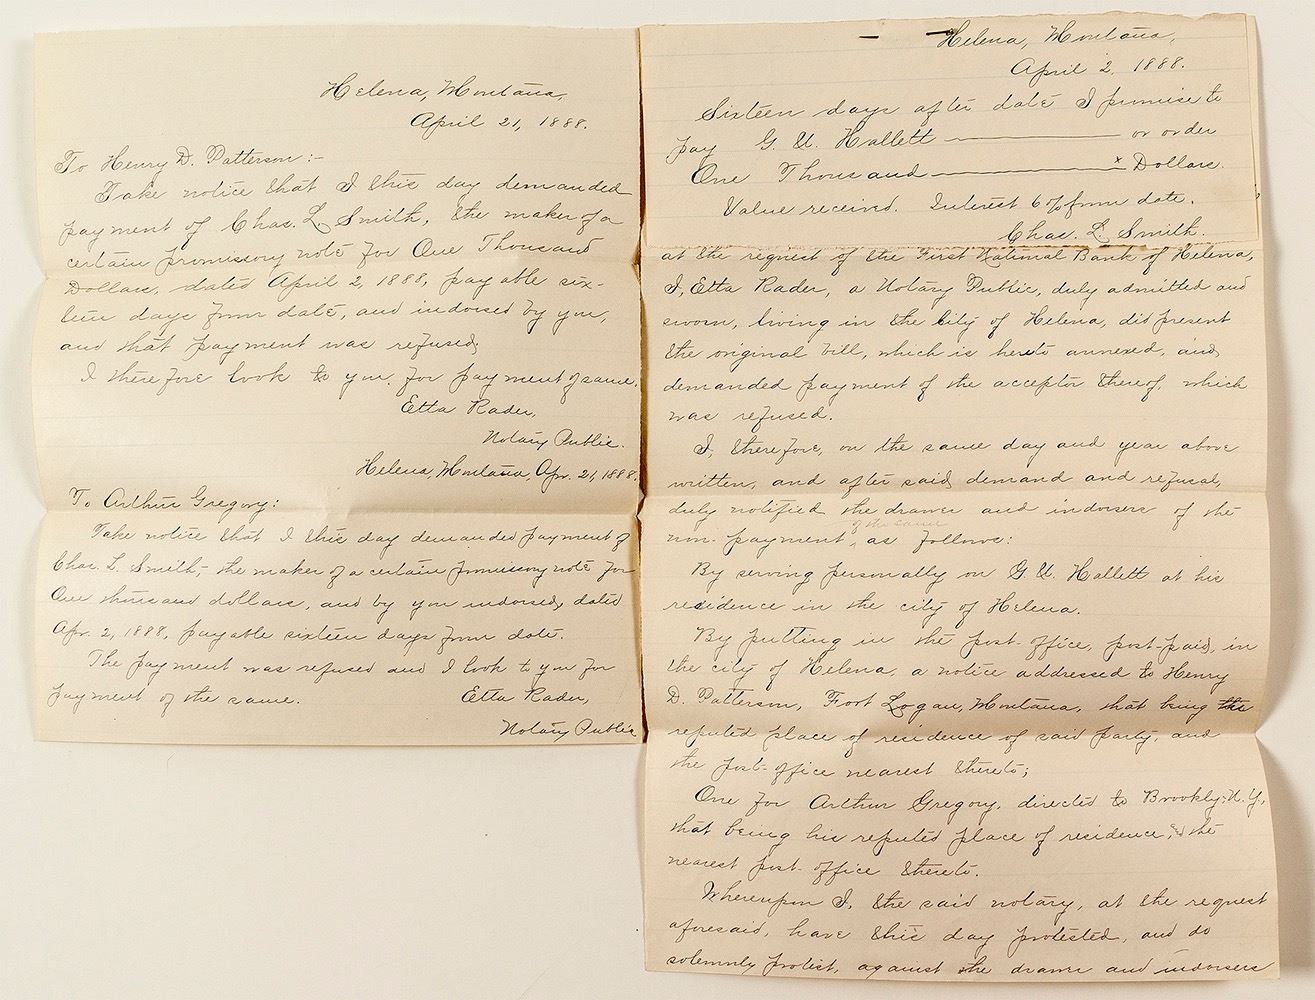 Helena, Montana,
April 21, 1888.
To Henry D. Patterson:-
Take notice that I this day demanded
payment of Chas. L. Smith, the maker of a
certain promissory note for One Thousand
Dollars, dated April 2, 1888, payable six-
teen days from date, and indorsed by you,
and that payment was refused;
I therefore look to you for payment of same.
Etta Rader,
Notary Public.
Helena, Montana, Apr. 21, 1888.
To Arthur Gregory:
Take notice that I this day demanded payment of
Chas. L. Smith, the maker of a certain promissory note for
One thousand dollars, and by you indorsed, dated
Apr. 2, 1888, payable sixteen days from date.
The payment was refused and I look to you for
payment of the same.
Etta Rader,
Notary Public
Helena, Montana,
April 2, 1888.
Sixteen days after date I promise to
pay G. U. Hallett or order
One Thousand x Dollars.
Value received. Interest 6% from date.
Chas. L. Smith.
at the request of the First National Bank of Helena,
I, Etta Rader, a Notary Public, duly admitted and
sworn, living in the City of Helena, did present
the original bill, which is hereto annexed, and
demanded payment of the acceptor thereof, which
was refused.
I, therefore, on the same day and year above
written, and after said demand and refusal,
duly notified the drawer and indorsers of the
of the same
non-payment, as follows:
By serving personally on G. U. Hallett at his
residence in the city of Helena.
By putting in the post-office, post-paid, in
the city of Helena, a notice addressed to Henry
D. Patterson, Foot Logan, Montana, that being the
reputed place of residence of said party, and
the post-office nearest thereto;
One for Arthur Gregory, directed to Brookly, N.Y.,
that being his reputed place of residence, & the
nearest post-office thereto.
Whereupon I, the said notary, at the request
aforesaid, have this day protested, and do
solemnly protest, against the drawer and indorsers